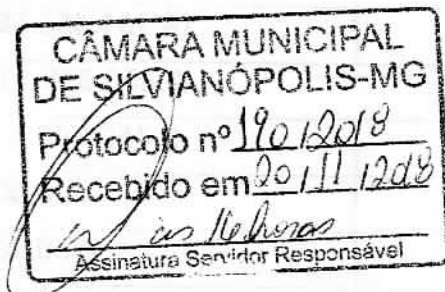 CÂMARA MUNICIPAL
DE SILVIANÓPOLIS-MG
Protocolo nº 190/2018
Recebido em 20/11/2018
às 16 horas
Assinatura Servidor Responsável